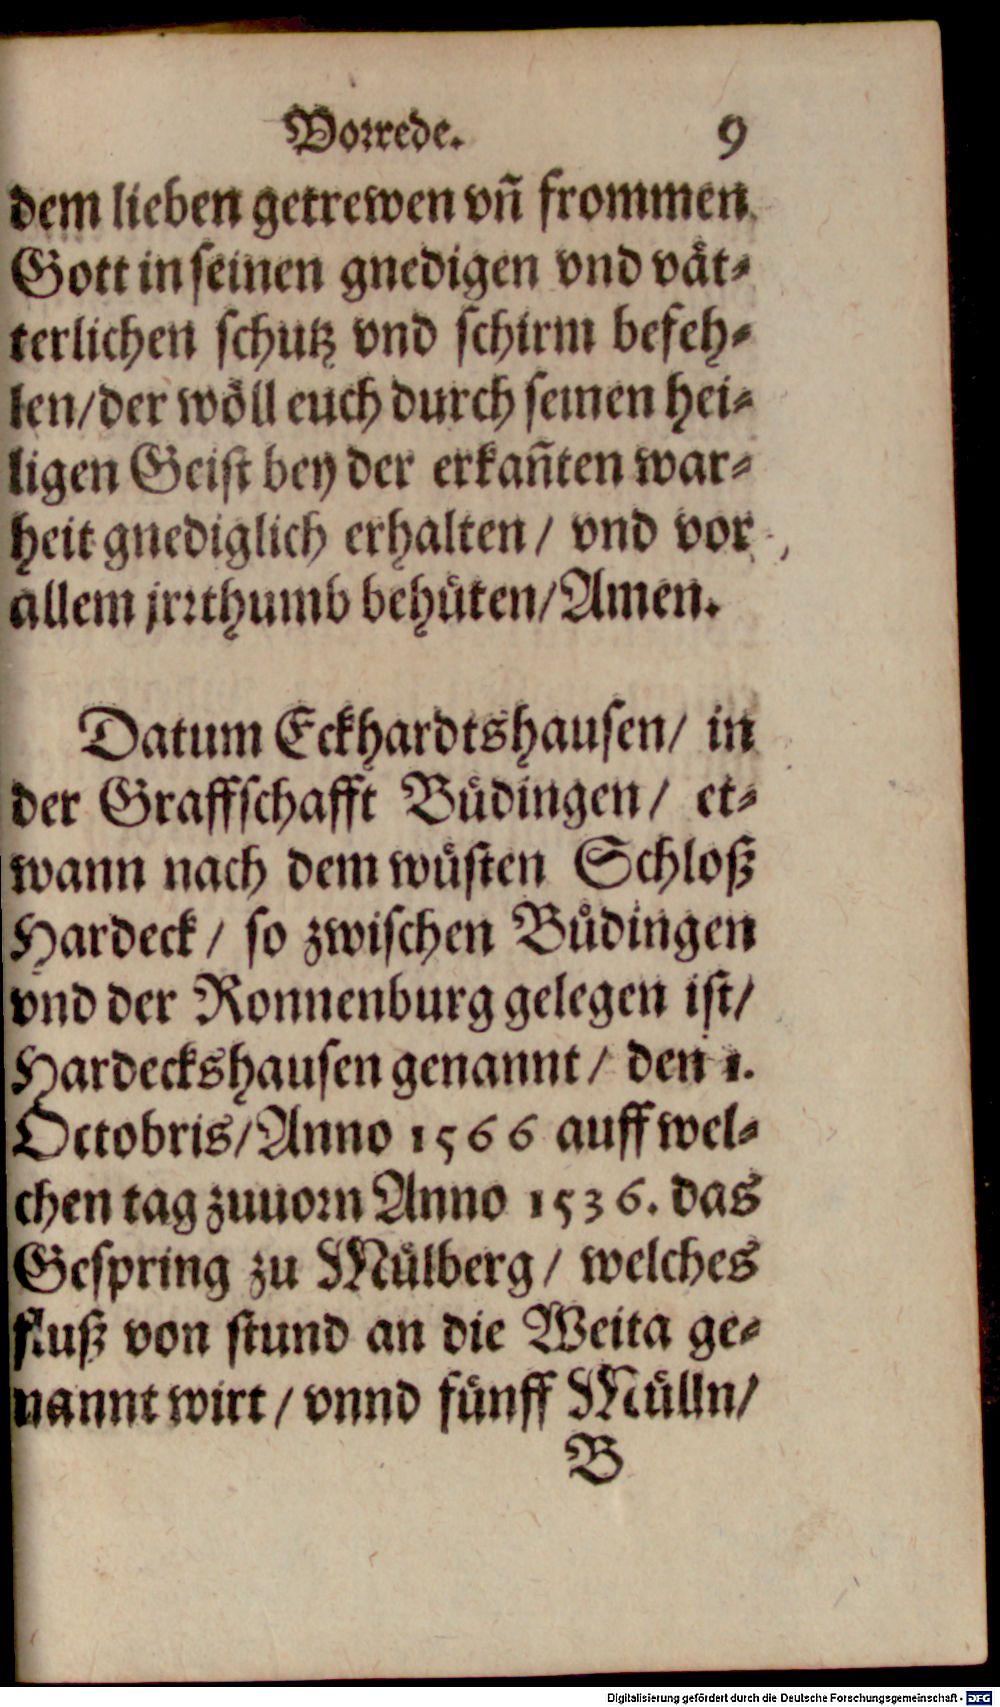 Vorrede. 9
dem lieben getrewen vñ frommen
Gott in seinen gnedigen vnd vät-
terlichen schutz vnd schirm befeh-
len/der wöll euch durch seinen hei-
ligen Geist bey der erkañten war-
heit gnediglich erhalten/ vnd vor
allem jrrthumb behüten/Amen.
Datum Eckhardtshausen/ in
der Graffschafft Büdingen/ et-
wann nach dem wüsten Schloß
Hardeck/ so zwischen Büdingen
vnd der Ronnenburg gelegen ist/
Hardeckshausen genannt/ den 1.
Octobris/Anno 1566 auff wel-
chen tag zuuorn Anno 1536. das
Gespring zu Mülberg/ welches
fluß von stund an die Weita ge-
nannt wirt/ vnnd fünff Mülln/
B
Digitalisierung gefördert durch die Deutsche Forschungsgemeinschaft - DFG